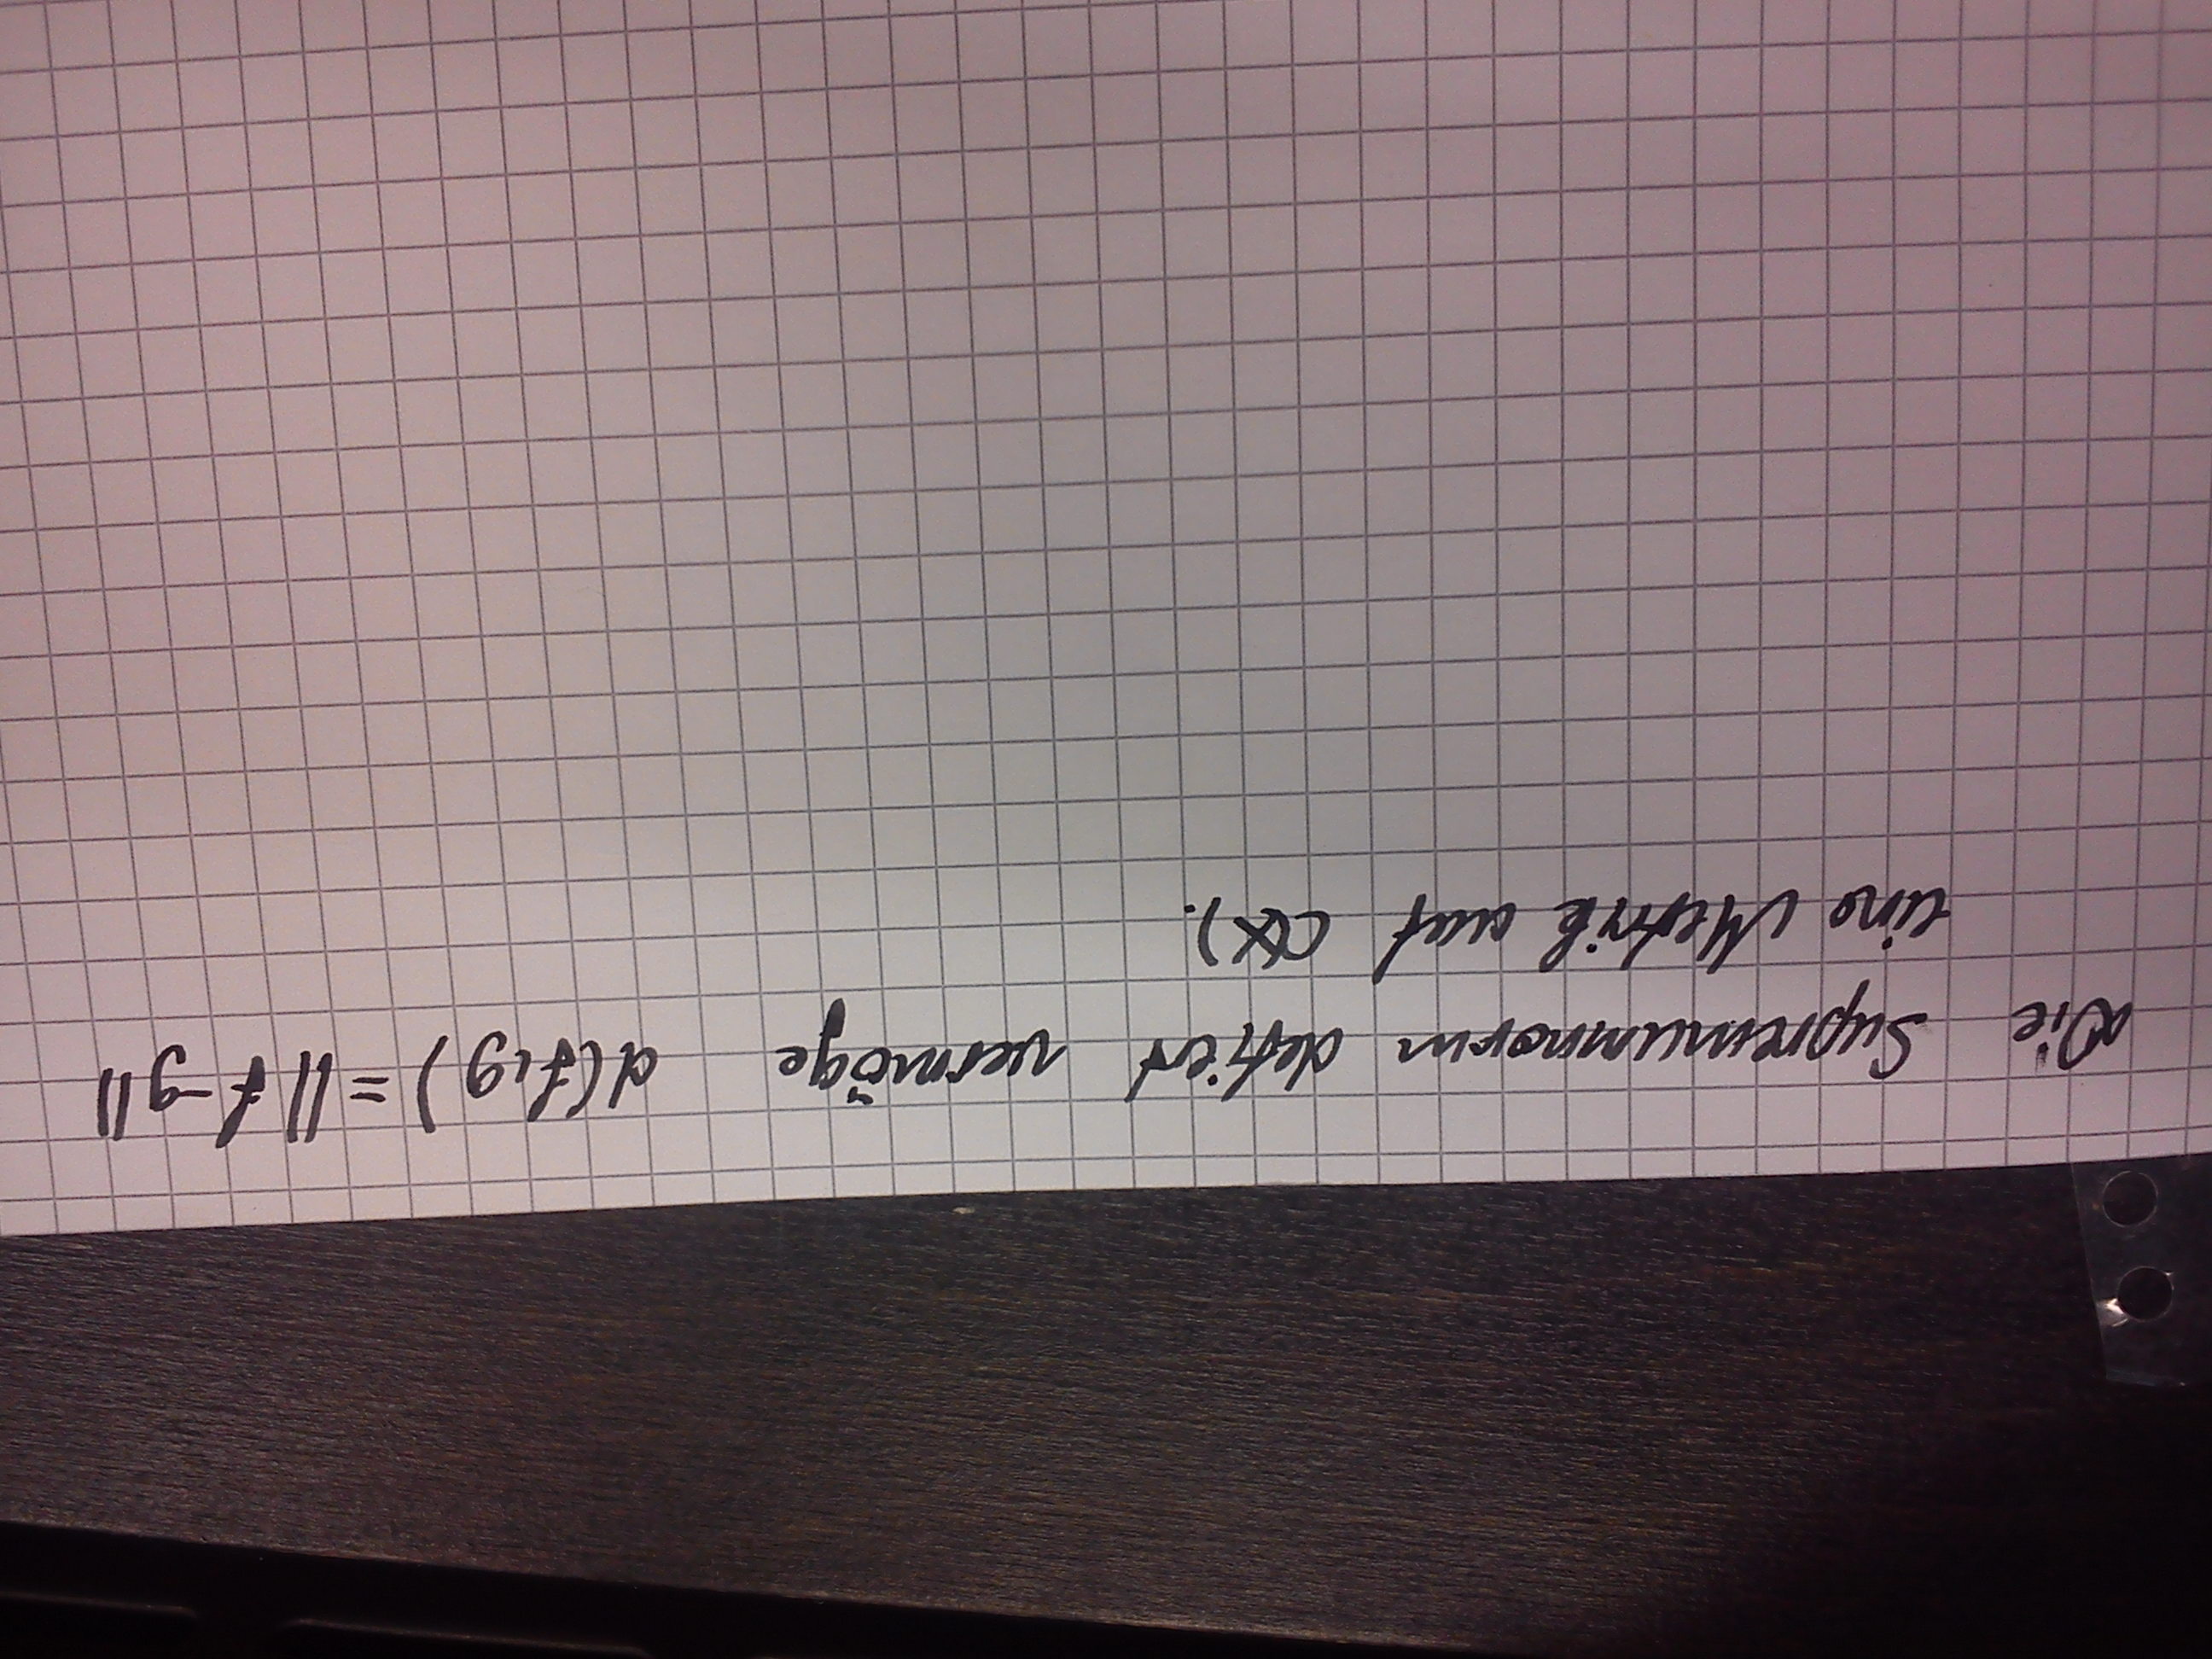 Die Supremumnorm defiert vermöge d(f,g) = ||f-g||
eine Metrik auf C(X).